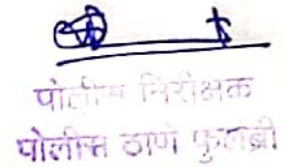 पोलीस निरीक्षक
पोलीस ठाणे फुलंब्री